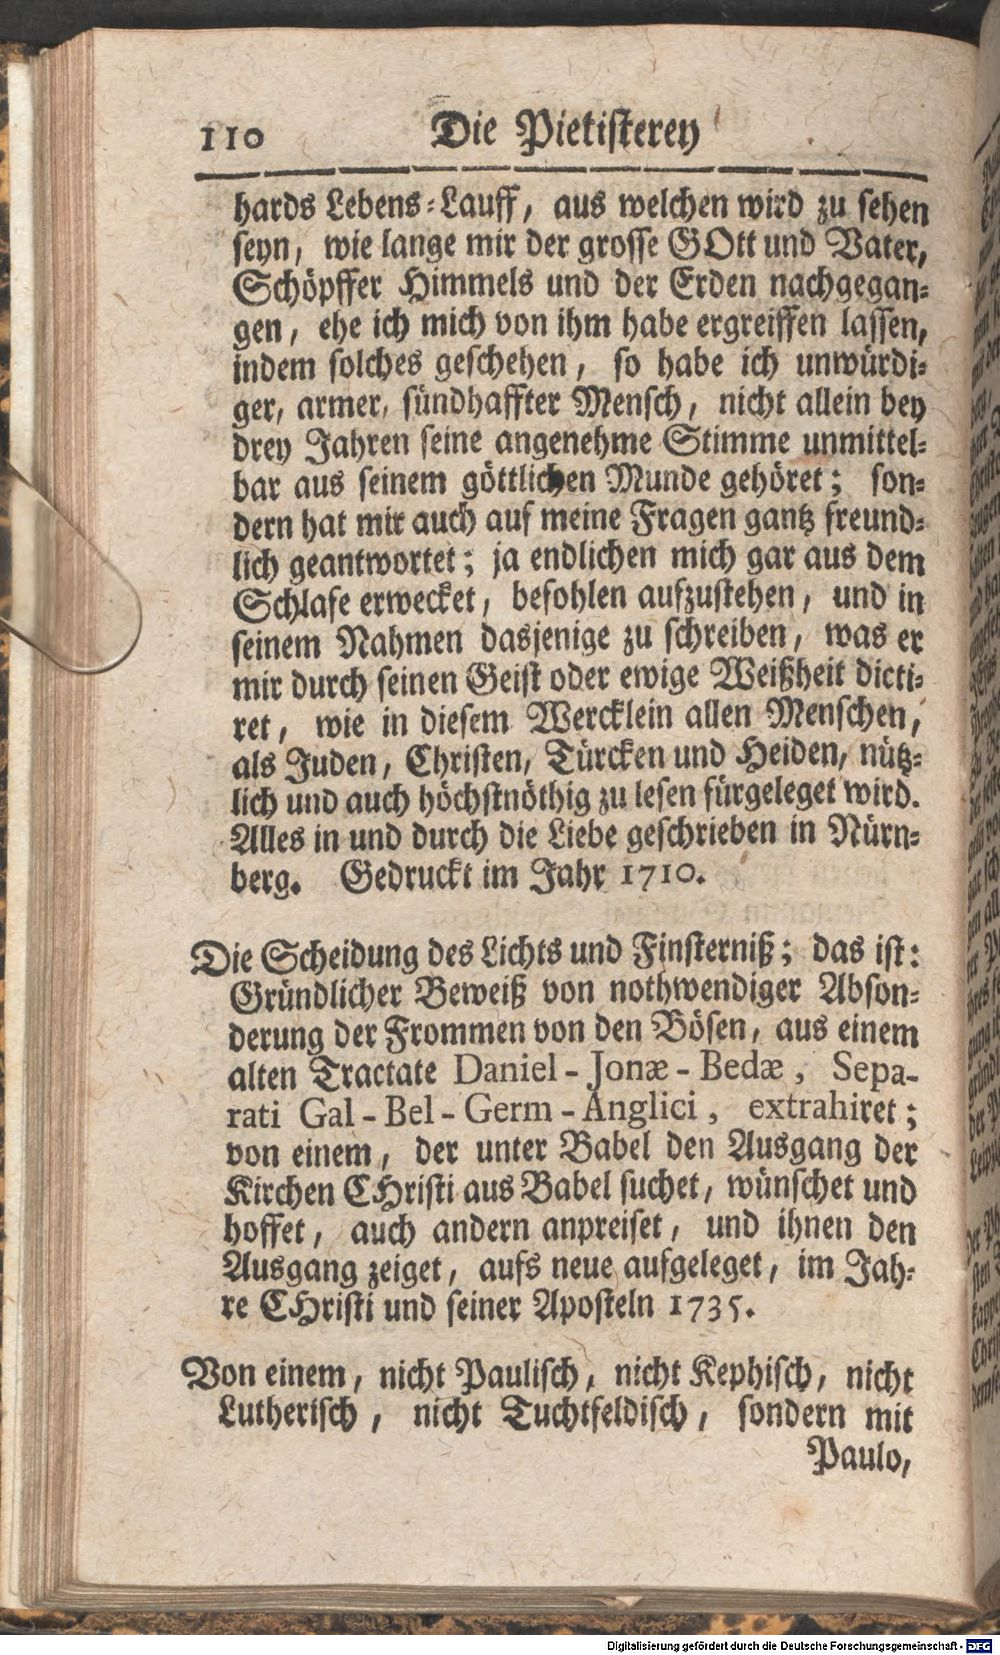 110 Die Pietisterey
hards Lebens-Lauff, aus welchen wird zu sehen
seyn, wie lange mir der grosse GOtt und Vater,
Schöpffer Himmels und der Erden nachgegan-
gen, ehe ich mich von ihm habe ergreiffen lassen,
indem solches geschehen, so habe ich unwürdi-
ger, armer, sündhaffter Mensch, nicht allein bey
drey Jahren seine angenehme Stimme unmittel-
bar aus seinem göttlichen Munde gehöret; son-
dern hat mir auch auf meine Fragen gantz freund-
lich geantwortet; ja endlichen mich gar aus dem
Schlafe erwecket, befohlen aufzustehen, und in
seinem Nahmen dasjenige zu schreiben, was er
mir durch seinen Geist oder ewige Weißheit dicti-
ret, wie in diesem Wercklein allen Menschen,
als Juden, Christen, Türcken und Heiden, nütz-
lich und auch höchstnöthig zu lesen fürgeleget wird.
Alles in und durch die Liebe geschrieben in Nürn-
berg. Gedruckt im Jahr 1710.
Die Scheidung des Lichts und Finsterniß; das ist:
Gründlicher Beweiß von nothwendiger Abson-
derung der Frommen von den Bösen, aus einem
alten Tractate Daniel-Jonæ-Bedæ, Sepa-
rati Gal-Bel-Germ-Anglici, extrahiret;
von einem, der unter Babel den Ausgang der
Kirchen CHristi aus Babel suchet, wünschet und
hoffet, auch andern anpreiset, und ihnen den
Ausgang zeiget, aufs neue aufgeleget, im Jah-
re CHristi und seiner Aposteln 1735.
Von einem, nicht Paulisch, nicht Kephisch, nicht
Lutherisch, nicht Tuchtfeldisch, sondern mit
Paulo,
Digitalisierung gefördert durch die Deutsche Forschungsgemeinschaft - DFG